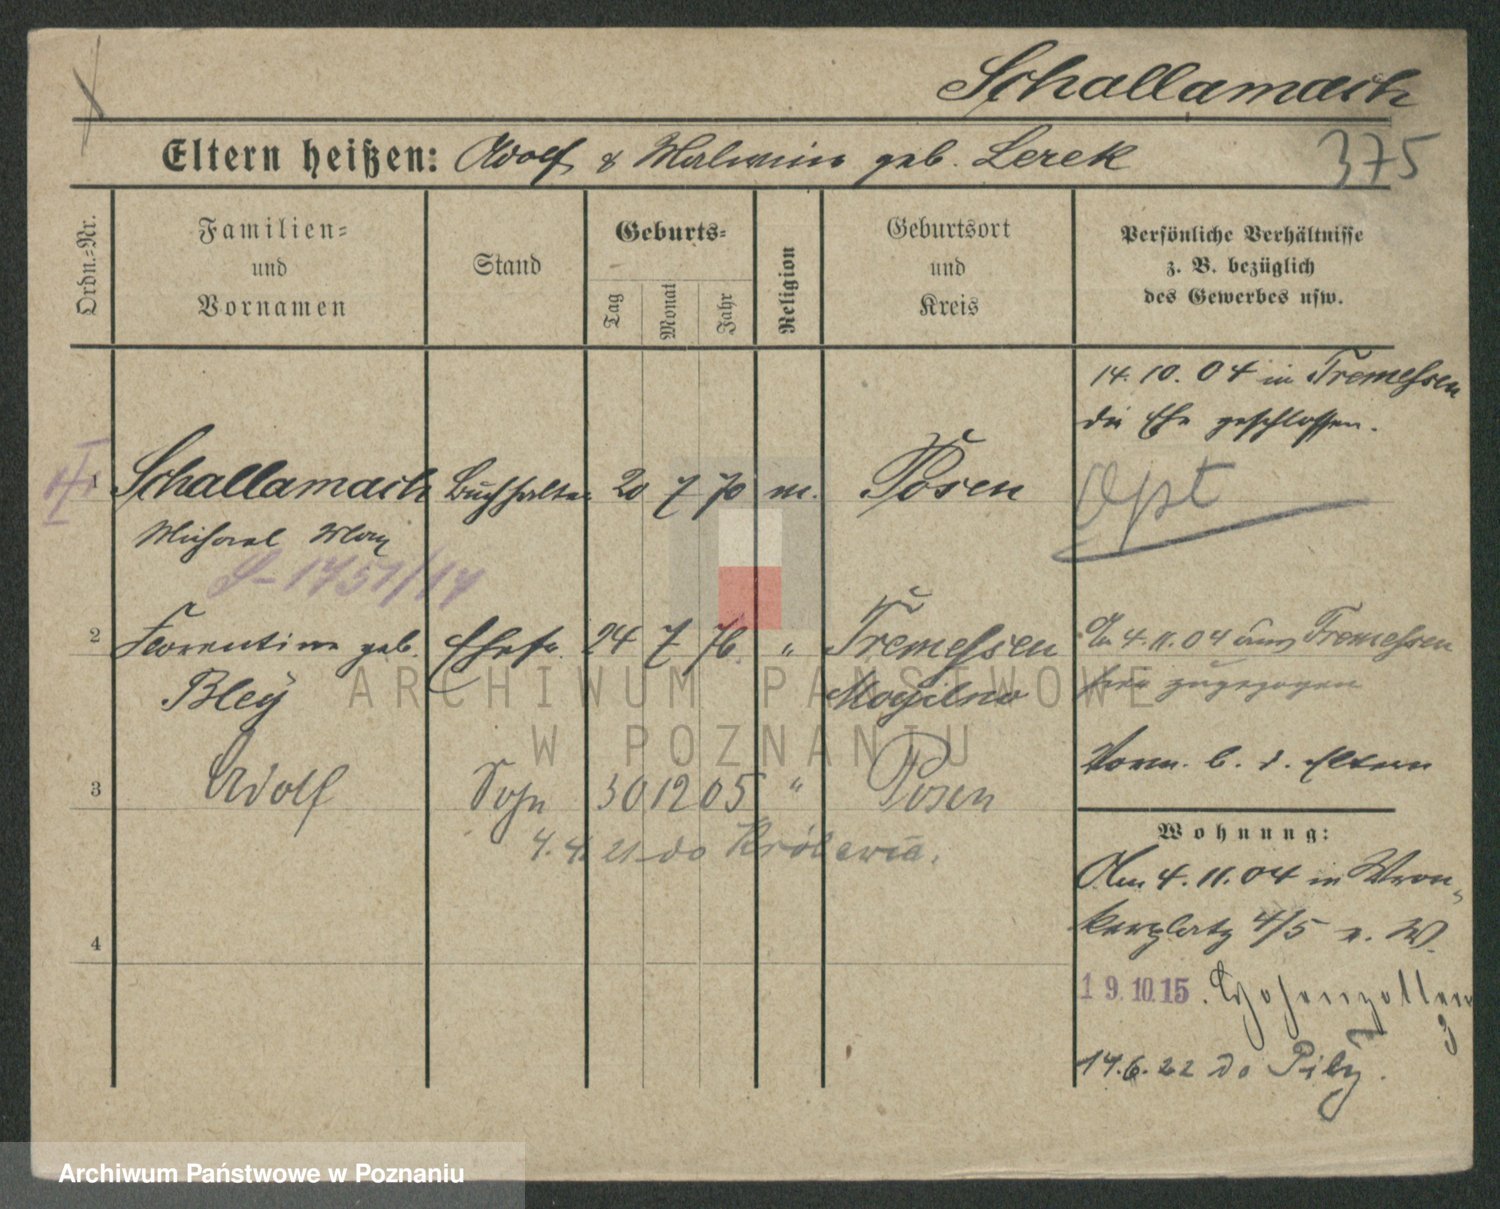 Schallamach
Eltern heißen: Adolf & Malwine geb. Lerek
375
Ordn.-Nr.
Familien-
und
Vornamen
Stand
Geburts-
Tag
Monat
Jahr
Religion
Geburtsort
und
Kreis
Persönliche Verhältnisse
z. B. bezüglich
des Gewerbes usw.
14. 10. 04 in Tremessen
die Ehe geschlossen.
1 Schallamach Buchhalter 20 7 70 m. Posen
Opt
Michael Max
1751/14
2 Florentine geb. Ehefr. 24 7 76 " Tremessen
Bley Mogilno
4. 11. 04 aus Tremessen
hier zugezogen
Vorm. b. d. Eltern
3 Adolf Sohn 30 12 05 " Posen
4. 4. 21 do
4
Wohnung:
Am 4. 11. 04 in Wron-
kerplatz 4/5 v. W.
19. 10. 15. Hohenzollern
3
14. 6. 22 do Piły.
ARCHIWUM PAŃSTWOWE
W POZNANIU
Archiwum Państwowe w Poznaniu